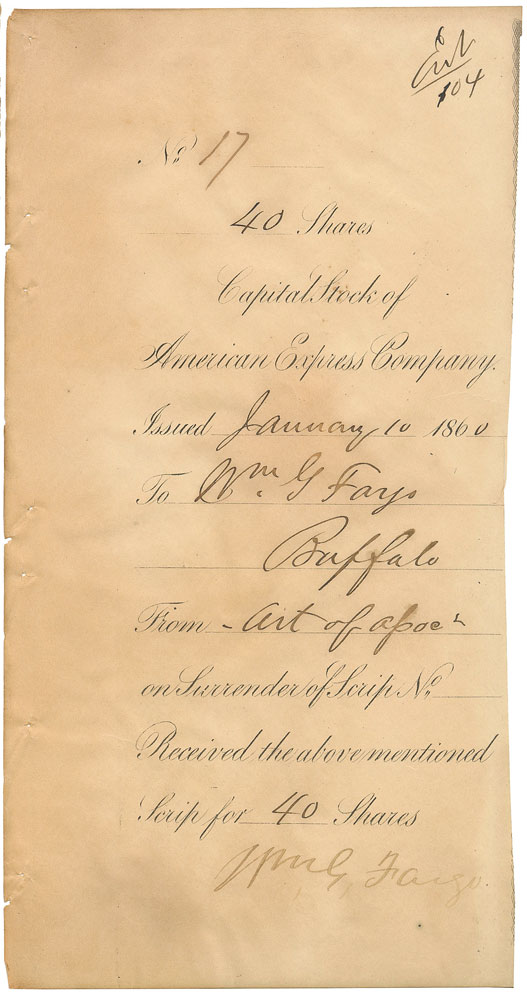 Ent
104
No 17
40 Shares
Capital Stock of
American Express Company.
Issued January 10 1860
To Wm. G Fargo
Buffalo
From - Art of assoc n
on Surrender of Scrip No
Received the above mentioned
Scrip for 40 Shares
Wm G. Fargo